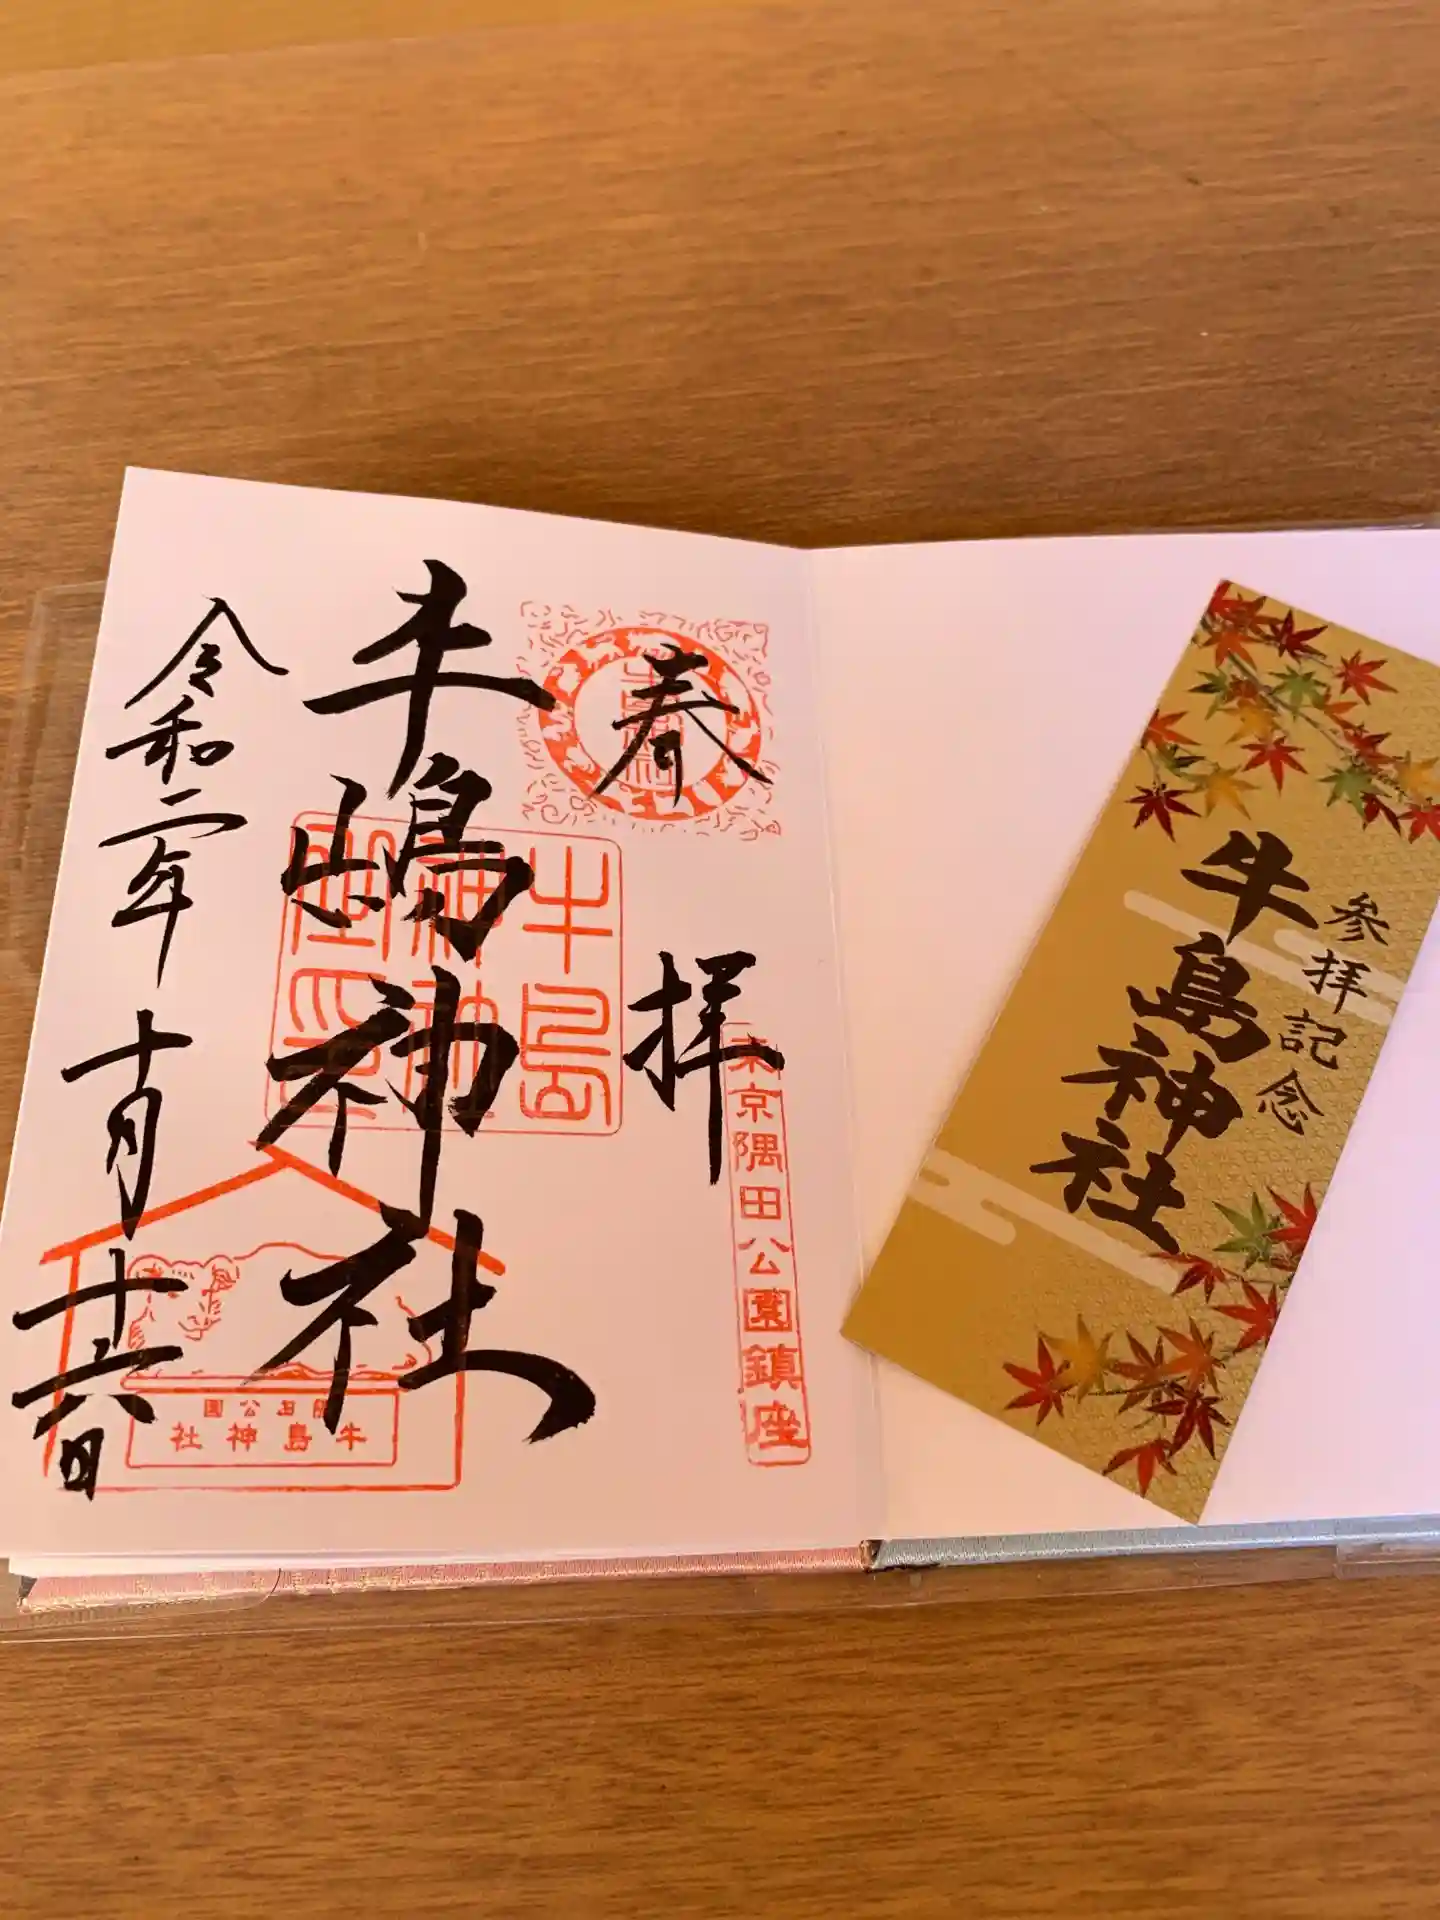 奉拝
東京隅田公園鎮座
牛嶋神社
牛島
神社
御印
隅田公園
牛島神社
令和二年十月十六日
参拝記念
牛島神社